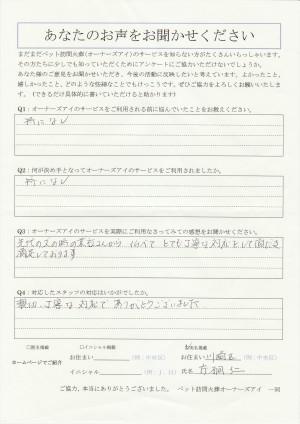 あなたのお声をお聞かせください
まだまだペット訪問火葬(オーナーズアイ)のサービスを知らない方がたくさんいらっしゃいます。
その方たちに少しでも知っていただくためにアンケートにご協力いただけないでしょうか。
あなた様のご意見をお聞かせいただき、今後の活動に反映したいと考えています。よかったこと、
嬉しかったこと、どのような些細なことでもけっこうです。ぜひご協力をよろしくお願いいたしま
す。(できるだけ具体的に書いていただけると助かります)
Q1:オーナーズアイのサービスをご利用される前に悩んでいたことをお教えください。
特になし
Q2:何が決め手となってオーナーズアイのサービスをご利用されましたか。
特になし
Q3:オーナーズアイのサービスを実際にご利用なさってみての感想をお聞かせください。
先代の犬の時の業者さんから比べて とても丁寧な対応として
満足しております
Q4:対応したスタッフの対応はいかがでしたか。
親切、丁寧な対応で ありがとうございました
□匿名掲載 □イニシャル掲載 お名前掲載
ホームページでご紹介
お住まい (例:中央区) お住まい 川崎区 (例:中央区)
イニシャル (例:J.H) 氏名
ご協力、本当にありがとうございました。 ペット訪問火葬オーナーズアイ 一同